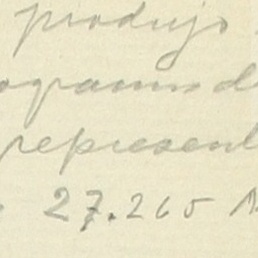 produjo
ogramo d
represent
27.265